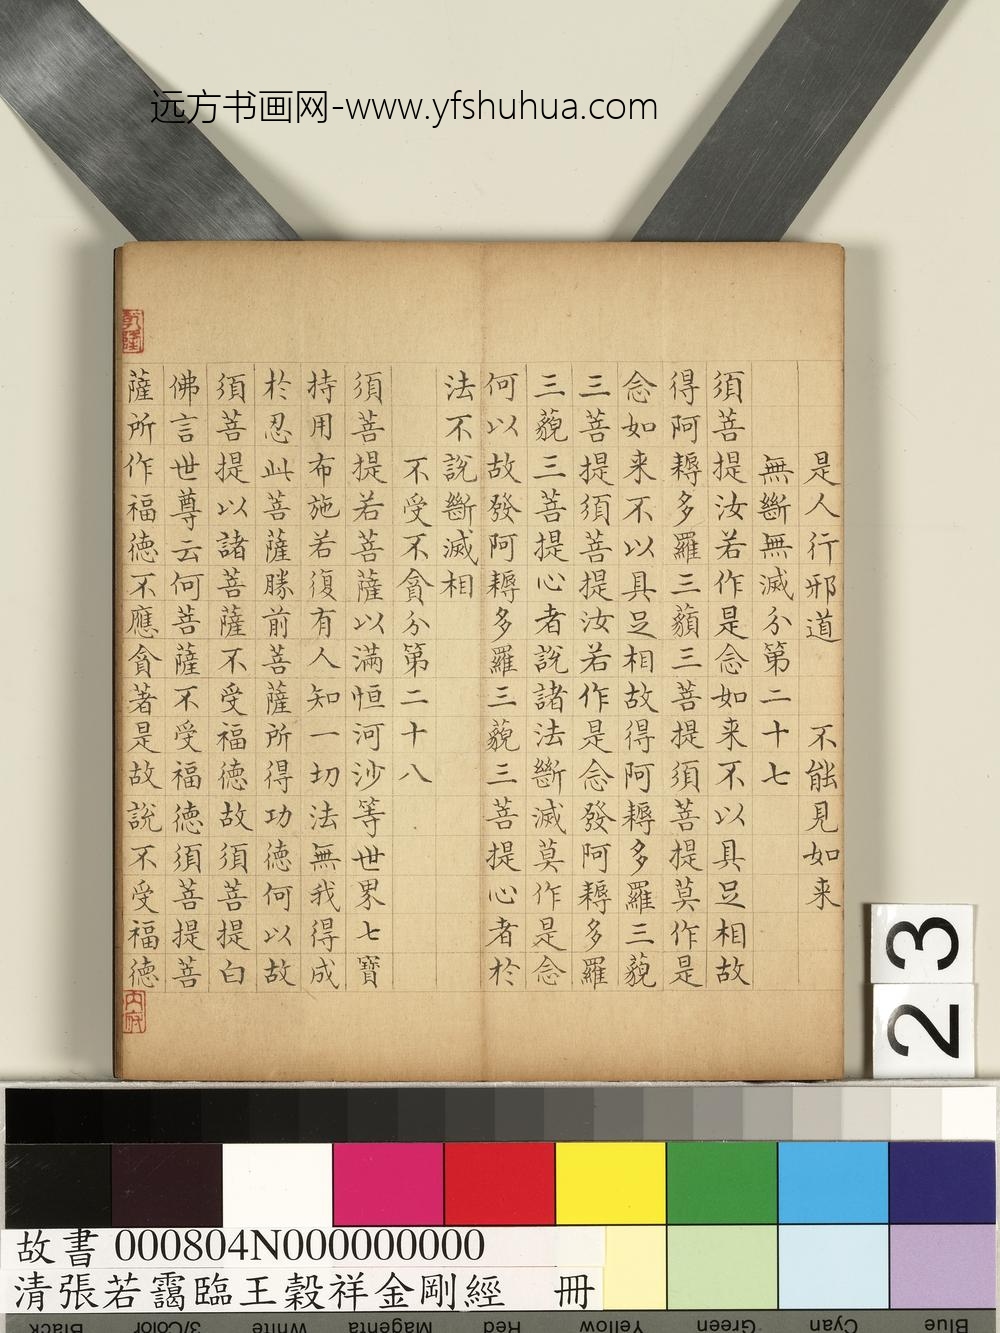 远方书画网-www.yfshuhua.com
是人行邪道　不能見如来
無斷無滅分第二十七
須菩提汝若作是念如来不以具足相故
得阿耨多羅三藐三菩提須菩提莫作是
念如来不以具足相故得阿耨多羅三藐
三菩提須菩提汝若作是念發阿耨多羅
三藐三菩提心者說諸法斷滅莫作是念
何以故發阿耨多羅三藐三菩提心者於
法不說斷滅相
不受不貪分第二十八
須菩提若菩薩以滿恒河沙等世界七寶
持用布施若復有人知一切法無我得成
於忍此菩薩勝前菩薩所得功德何以故
須菩提以諸菩薩不受福德故須菩提白
佛言世尊云何菩薩不受福德須菩提菩
薩所作福德不應貪著是故說不受福德
乾隆
内府
23
故書 000804N000000000
清張若靄臨王穀祥金剛經　冊
Black
3/Color
White
Magenta
Red
Yellow
Green
Cyan
Blue